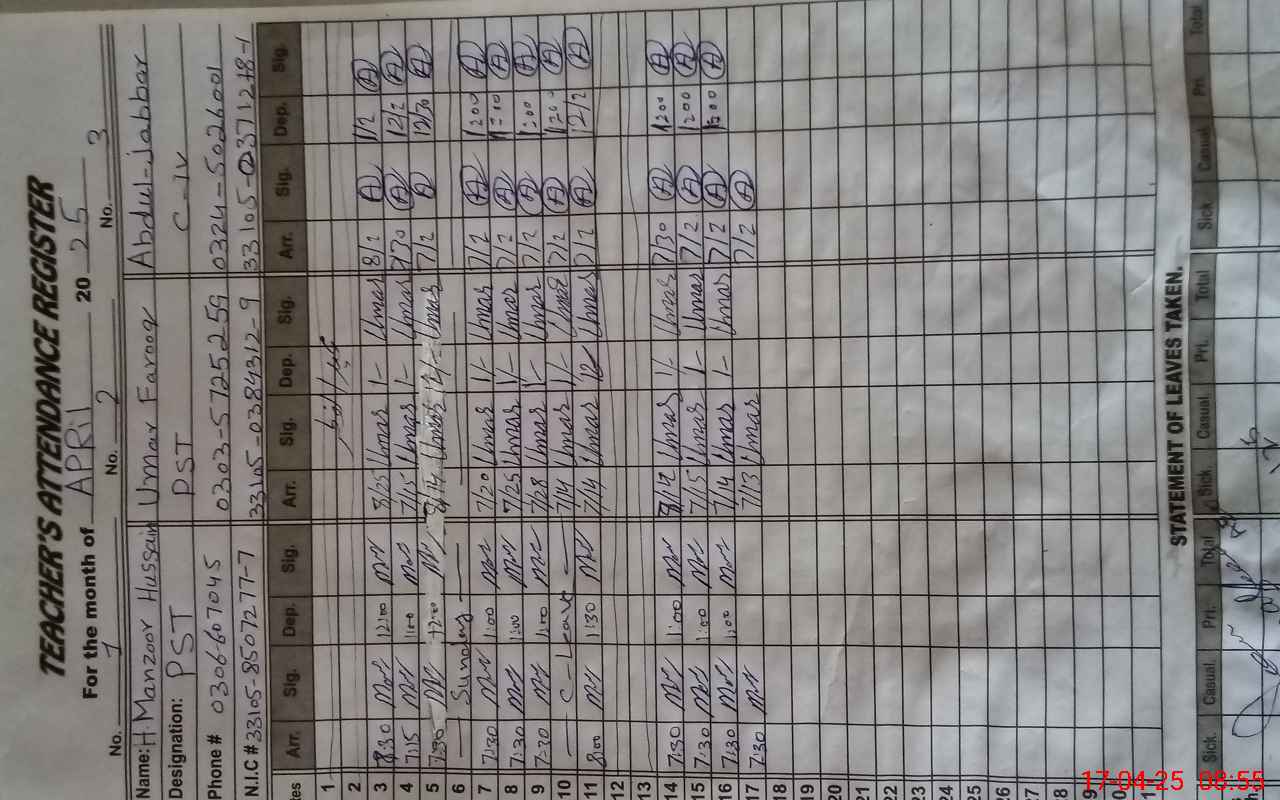 TEACHER'S ATTENDANCE REGISTER
For the month of APRIL 2025
No. 1 No. 2 No. 3
Name: H. Manzoor Hussain Umar Farooq Abdul-Jabbar
Designation: PST PST C-IV
Phone # 0306-607045 0303-5725259 0324-5026001
N.I.C # 33105-8507277-7 33105-0384312-9
Arr. Sig. Dep. Sig. Arr. Sig. Dep. Sig. Arr. Sig. Dep. Sig.
1
2
3 8:30 12:00 8/25 Umar 1- Umar 8/2 A 1/2 A
4 7:15 1:00 7/15 Umar 1- Umar 7/30 A 12/2 A
5 7:30 12:00 8/14 Umar Umar 7/2 A 12/30 A
6 Sunday
7 7:30 1:00 7/20 Umar 1/- Umar 7/2 A 1200 A
8 7:30 1:00 7/25 Umar 1/- Umar 7/2 A A
9 7:30 1:00 7/28 Umar 1/- Umar 7/2 A A
10 C-Leave 7/14 Umar 1/- Umar 7/2 A 1200 A
11 8:00 1:30 7/14 Umar 12 Umar 7/2 A 12/2 A
12
13
14 7:30 1:00 8/12 Umar 1/- Umar 7/30 A 1200 A
15 7:30 1:00 7/15 Umar 1- Umar 7/2 A 1200 A
16 7:30 1:00 7/14 Umar 1- Umar 7/2 A A
17 7:30 7/13 Umar 7/2 A
18
19
20
21
22
23
24
25
26
27
28
STATEMENT OF LEAVES TAKEN.
Sick. Casual. Pri. Total Sick. Casual. Pri. Total Sick. Casual Pri. Total
17-04-25 08:55